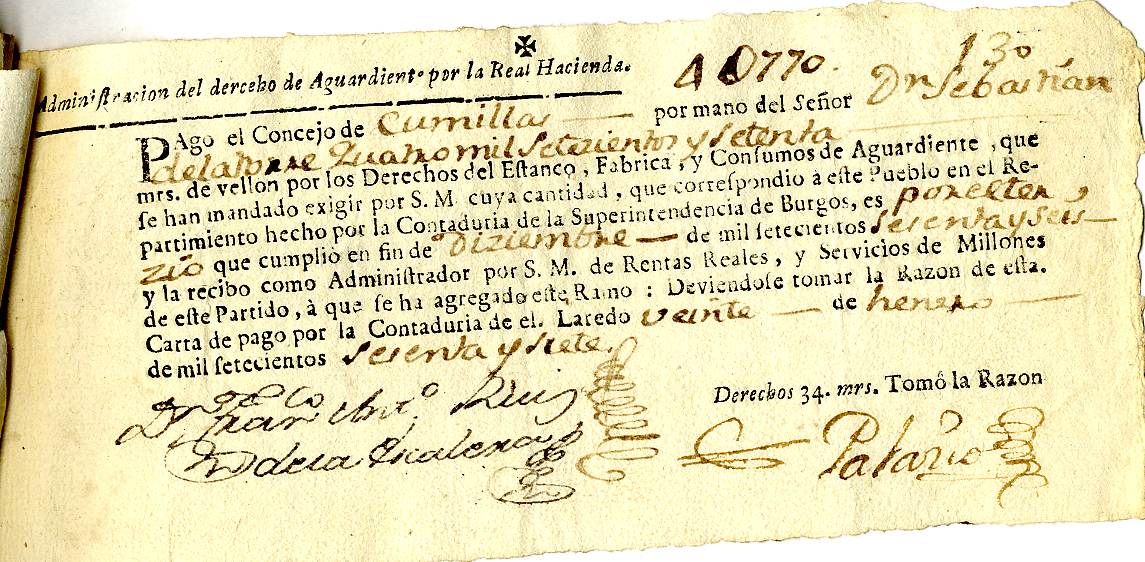 ✠
Administracion del derecho de Aguardiente por la Real Hacienda.
4U770.
130
PAgo el Concejo de Cumillas por mano del Señor Dn Sebastian
de la torre Quatro mil Setezientos y setenta
mrs. de vellon por los Derechos del Estanco, Fabrica, y Consumos de Aguardiente, que
se han mandado exigir por S. M. cuya cantidad, que correspondio à este Pueblo en el Re-
partimiento hecho por la Contaduria de la Superintendencia de Burgos, es por el ter
zio que cumpliò en fin de Diziembre de mil setecientos sesenta y seis
y la recibo como Administrador por S. M. de Rentas Reales, y Servicios de Millones
de este Partido, à que se ha agregado este Ramo: Deviendose tomar la Razon de esta.
Carta de pago por la Contaduria de el. Laredo veinte de henero
de mil setecientos sesenta y siete.
Derechos 34. mrs. Tomô la Razon
Dn Juan Anto Ruiz
de la Escalera
Palazio